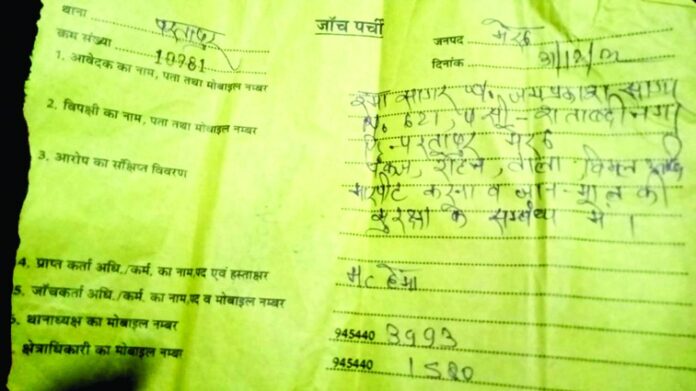 जाँच पर्ची
थाना परतापुर जनपद मेरठ
क्रम संख्या 10981 दिनांक 31/12/
1. आवेदक का नाम, पता तथा मोबाइल नम्बर
सागर जयप्रकाश सागर
2. विपक्षी का नाम, पता तथा मोबाइल नम्बर
621, शताब्दीनगर
परतापुर मेरठ
3. आरोप का संक्षिप्त विवरण
पंकज,
मारपीट करना व जान-माल की
सुरक्षा के सम्बंध में।
4. प्राप्त कर्ता अधि./कर्म. का नाम,पद एवं हस्ताक्षर
5. जाँचकर्ता अधि./कर्म. का नाम,पद व मोबाइल नम्बर
थानाध्यक्ष का मोबाइल नम्बर 945440 3993
क्षेत्राधिकारी का मोबाइल नम्बर 945440